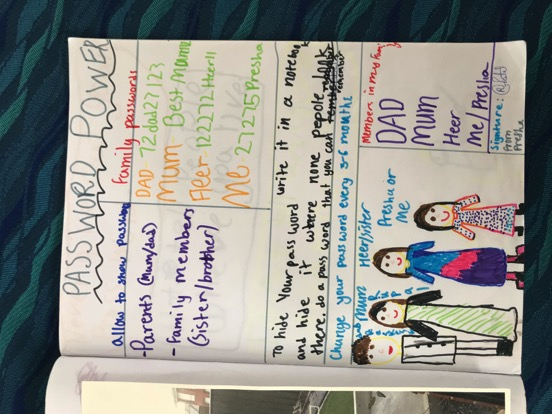 PASSWORD POWER
allow to show password
-Parents (Mum/dad)
- Family members
(sister/brother)
Family passwords
DAD- 72dad27/123
Mum- Best Mum
Heer- 122272Heer11
Me- 27225Presha
To hide Your pass word write it in a notebook
and hide it where none pepole look
there. do a pass word that you can remember
Change your password every 3-6 months
Members in my family
DAD
MUM
Heer
Me/Presha
Signature:
From
Presha
mum
Heer/sister
Preshu or
Me